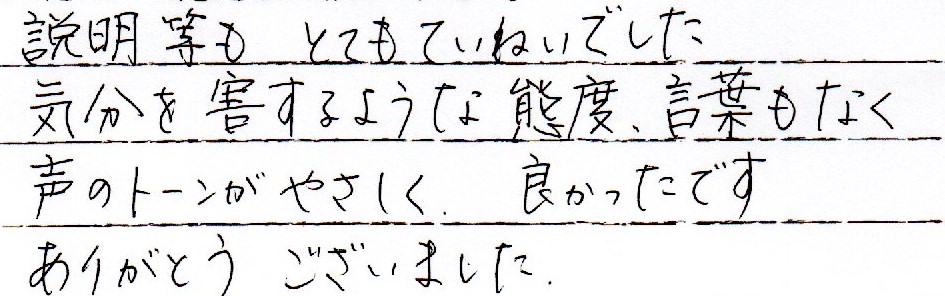 説明等も とてもていねいでした
気分を害するような態度、言葉もなく
声のトーンがやさしく、 良かったです
ありがとう ございました.